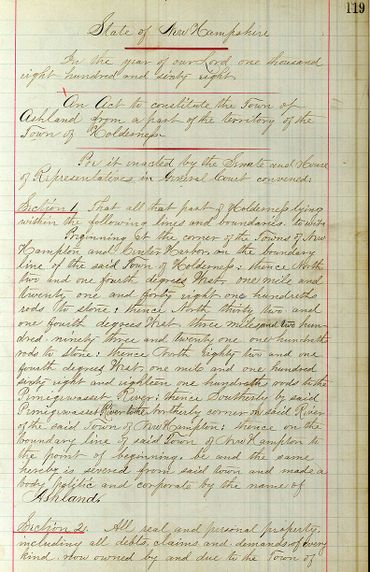 119
State of New Hampshire
In the year of our Lord one thousand
eight hundred and sixty eight
An Act to constitute the Town of
Ashland from a part of the territory of the
Town of Holderness.
Be it enacted by the Senate and House
of Representatives in General Court convened:
Section 1. That all that part of Holderness lying
within the following lines and boundaries to wit:
Beginning at the corner of the Towns of New
Hampton and Center Harbor, on the boundary
line of the said Town of Holderness; thence North
two and one fourth degrees West, one mile and
twenty one and forty eight one hundredths
rods to stone; thence North thirty two and
one fourth degrees West, three miles and two hun-
dred ninety three and twenty one one hundredth
rods to stone; thence North eighty two and one
fourth degrees West one mile and one hundred
sixty eight and eighteen one hundredth rods to the
Pemigewasset River; thence Southerly by said
Pemigewasset River to the Northerly corner on said River
of the said Town of New Hampton; thence on the
boundary line of said Town of New Hampton to
the point of beginning, be and the same
hereby is severed from said town and made a
body politic and corporate by the name of
Ashland.
Section 2. All real and personal property
including all debts, claims and demands of every
kind now owned by and due to the Town of